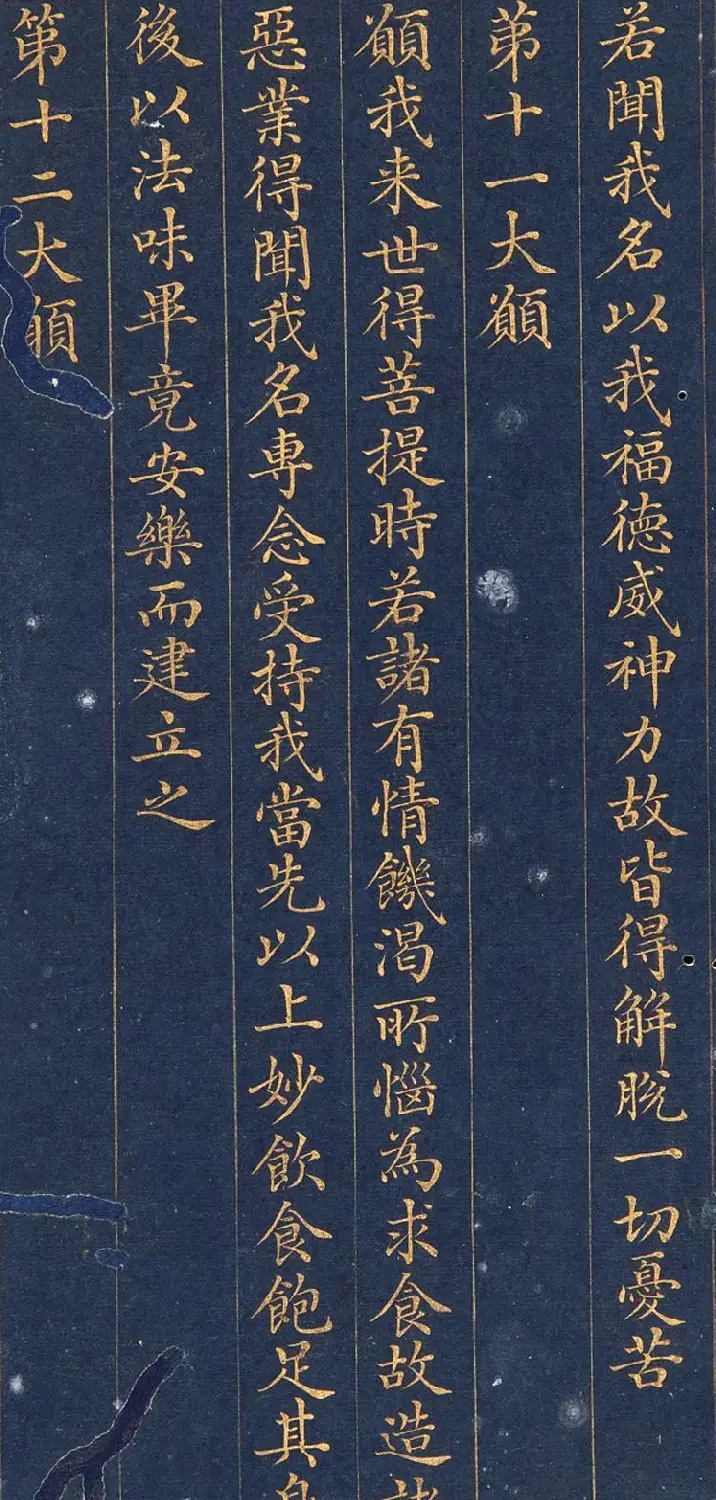 若聞我名以我福德威神力故皆得解脫一切憂苦
第十一大願
願我来世得菩提時若諸有情饑渴所惱為求食故造
惡業得聞我名專念受持我當先以上妙飲食飽足其
後以法味畢竟安樂而建立之
第十二大願